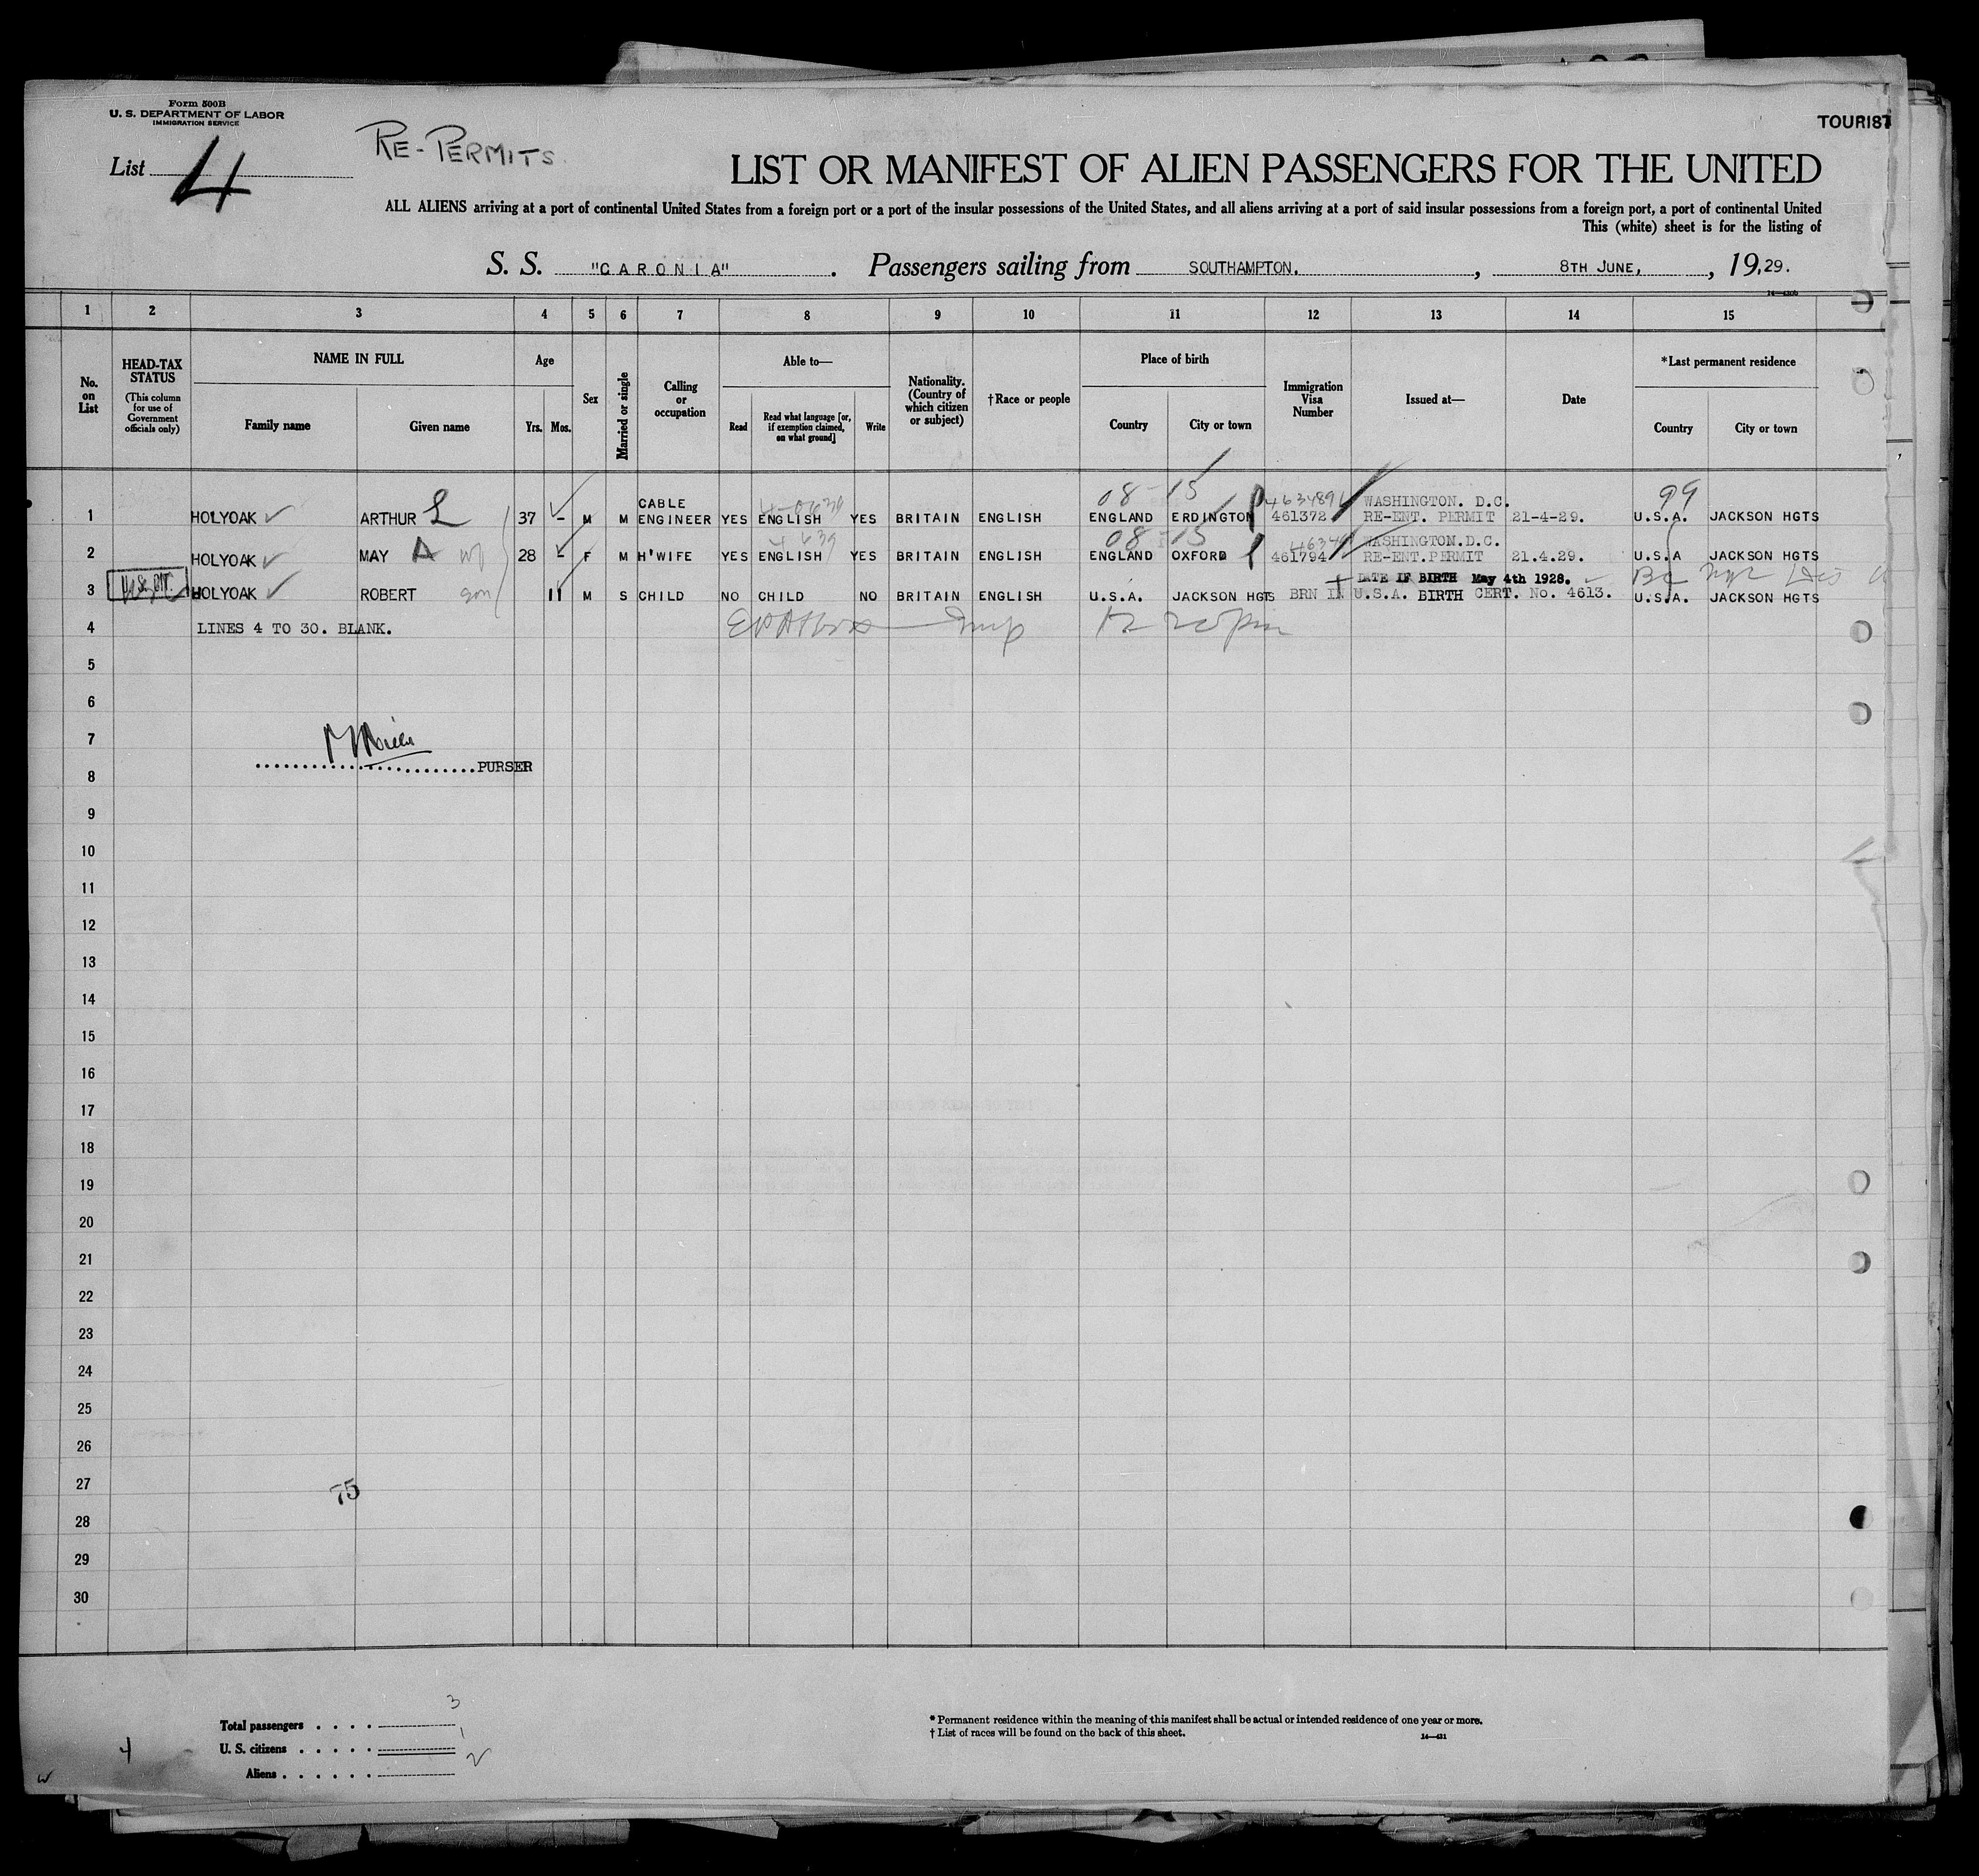 Form 500B
U. S. DEPARTMENT OF LABOR
IMMIGRATION SERVICE
TOURIST
List 4
RE-PERMITS.
LIST OR MANIFEST OF ALIEN PASSENGERS FOR THE UNITED
ALL ALIENS arriving at a port of continental United States from a foreign port or a port of the insular possessions of the United States, and all aliens arriving at a port of said insular possessions from a foreign port, a port of continental United
This (white) sheet is for the listing of
S. S. "CARONIA" . Passengers sailing from SOUTHAMPTON. , 8TH JUNE, , 19,29.
1 2 3 4 5 6 7 8 9 10 11 12 13 14 15
No. on List
HEAD-TAX STATUS
(This column for use of Government officials only)
NAME IN FULL
Family name Given name
Age
Yrs. Mos.
Sex
Married or single
Calling or occupation
Able to—
Read
Read what language [or, if exemption claimed, on what ground]
Write
Nationality. (Country of which citizen or subject)
†Race or people
Place of birth
Country City or town
Immigration Visa Number
Issued at—
Date
*Last permanent residence
Country City or town
08-15 99
CABLE WASHINGTON. D.C.
1 HOLYOAK ARTHUR L 37 - M M ENGINEER YES ENGLISH YES BRITAIN ENGLISH ENGLAND ERDINGTON 461372 RE-ENT. PERMIT 21-4-29. U.S.A. JACKSON HGTS
08-15 WASHINGTON.D.C.
2 HOLYOAK MAY A wf 28 - F M H'WIFE YES ENGLISH YES BRITAIN ENGLISH ENGLAND OXFORD 461794 RE-ENT.PERMIT 21.4.29. U.S.A JACKSON HGTS
DATE IF BIRTH May 4th 1928.
3 HOLYOAK ROBERT son 11 M S CHILD NO CHILD NO BRITAIN ENGLISH U.S.A. JACKSON HGTS BRN IN U.S.A. BIRTH CERT. No. 4613. U.S.A. JACKSON HGTS
4 LINES 4 TO 30. BLANK.
5
6
7
PURSER
8
9
10
11
12
13
14
15
16
17
18
19
20
21
22
23
24
25
26
27
75
28
29
30
Total passengers . . . . 3
U. S. citizens . . . . . 1
Aliens . . . . . . 2
* Permanent residence within the meaning of this manifest shall be actual or intended residence of one year or more.
† List of races will be found on the back of this sheet.
14—431